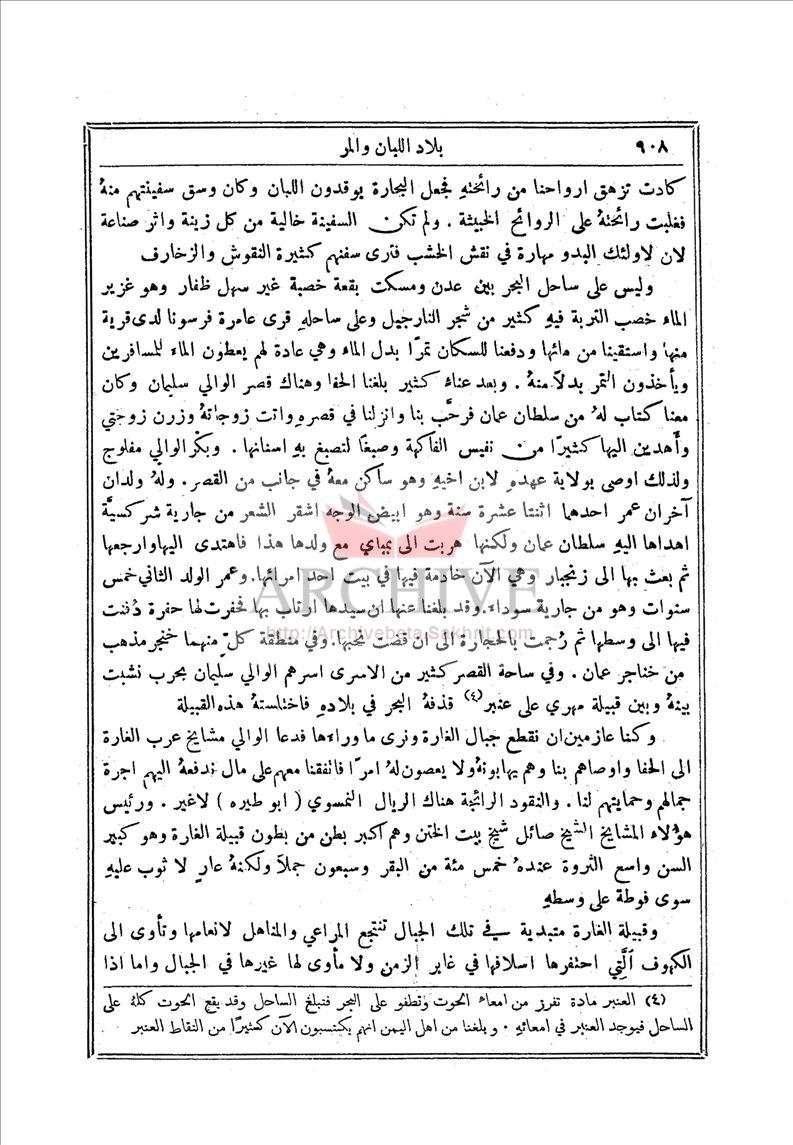 ٩٠٨
بلاد اللبان والمر
كادت تزهق ارواحنا من رائحتهِ فجعل البحارة يوقدون اللبان وكان وسق سفينتهم منهُ
فغلبت رائحتهُ على الروائح الخبيثة . ولم تكن السفينة خالية من كل زينة واثر صناعة
لان لاولئك البدو مهارة في نقش الخشب فترى سفنهم كثيرة النقوش والزخارف
وليس على ساحل البحر بين عدن ومسكت بقعة خصبة غير سهل ظفار وهو غزير
الماء خصب التربة فيهِ كثير من شجر النارجيل وعلى ساحلهِ قرى عامرة فرسونا لدى قرية
منها واستقينا من مائها ودفعنا للسكان تمرًا بدل الماء وهي عادة لهم يعطون الماء للمسافرين
ويأخذون التمر بدلاً منهُ . وبعد عناء كثير بلغنا الحفا وهناك قصر الوالي سليمان وكان
معنا كتاب لهُ من سلطان عمان فرحَّب بنا وانزلنا في قصرهِ واتت زوجاتهُ وزرن زوجتي
وأهدين اليها كثيرًا من نفيس الفاكهة وصبغًا لتصبغ بهِ اسنانها . وبكر الوالي مفلوج
ولذلك اوصى بولاية عهدهِ لابن اخيهِ وهو ساكن معهُ في جانب من القصر . ولهُ ولدان
آخران عمر احدهما اثنتا عشرة سنة وهو ابيض الوجه اشقر الشعر من جارية شركسيَّة
اهداها اليهِ سلطان عمان ولكنها هربت الى بمباي مع ولدها هذا فاهتدى اليها وارجعها
ثم بعث بها الى زنجبار وهي الآن خادمة فيها في بيت احد امرائها . وعمر الولد الثاني خمس
سنوات وهو من جارية سوداء . وقد بلغنا عنها ان سيدها ارتاب بها فحفرت لها حفرة دُفنت
فيها الى وسطها ثم رُجمت بالحجارة الى ان قضت نحبها . وفي منطقة كلٍّ منهما خنجر مذهب
من خناجر عمان . وفي ساحة القصر كثير من الاسرى اسرهم الوالي سليمان بحرب نشبت
بينهُ وبين قبيلة مهري على عنبر(٤) قذفهُ البحر في بلادهِ فاختلستهُ هذه القبيلة
وكنا عازمين ان نقطع جبال الغارة ونرى ما وراءها فدعا الوالي مشايخ عرب الغارة
الى الحفا واوصاهم بنا وهم يهابونهُ ولا يعصون لهُ امرًا فاتفقنا معهم على مال ندفعهُ اليهم اجرة
جمالهم وحمايتهم لنا . والنقود الرائجة هناك الريال النمسوي ( ابو طيره ) لا غير . ورئيس
هؤلاء المشايخ الشيخ صائل شيخ بيت الختن وهم اكبر بطن من بطون قبيلة الغارة وهو كبير
السن واسع الثروة عندهُ خمس مئة من البقر وسبعون جملاً ولكنهُ عارٍ لا ثوب عليهِ
سوى فوطة على وسطهِ
وقبيلة الغارة متبدية في تلك الجبال تنتجع المراعي والمناهل لانعامها وتأوى الى
الكهوف الَّتي احتفرها اسلافها في غابر الزمن ولا مأوى لها غيرها في الجبال واما اذا
(٤) العنبر مادة تفرز من امعاء الحوت وتطفو على البحر فتبلغ الساحل وقد يقع الحوت كلهُ على
الساحل فيوجد العنبر في امعائهِ . وبلغنا من اهل اليمن انهم يكتسبون الآن كثيرًا من التقاط العنبر
ARCHIVE
http://Archivebeta.Sakhrit.com